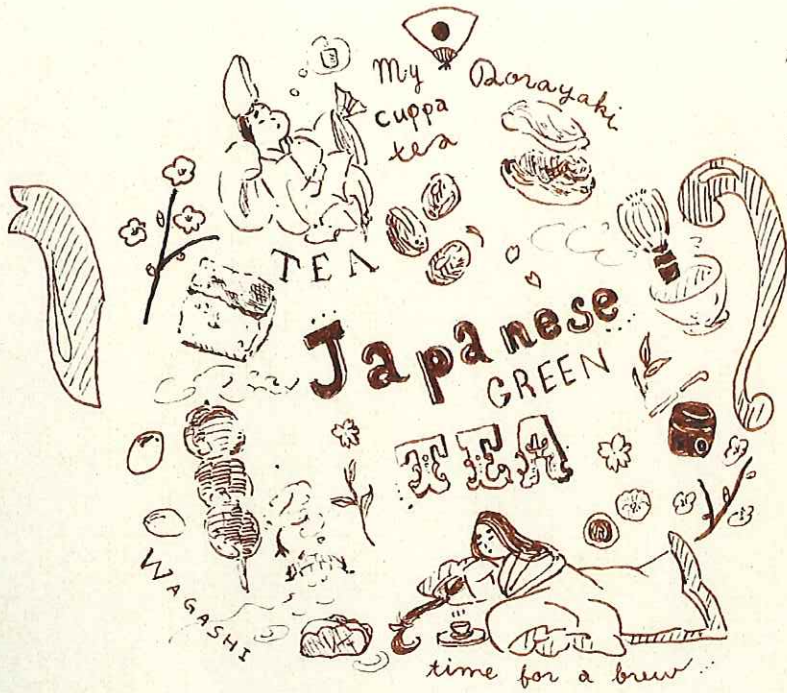 My
cuppa
tea
Dorayaki
TEA
Japanese
GREEN
TEA
WAGASHI
time for a brew...